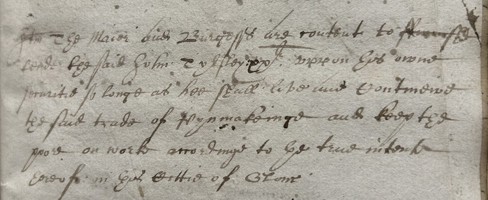 The Maior and Burgesses are content to
lende the said John Tylsley xx li uppon his owne
securitie so longe as hee shall live and Contynewe
the said trade of Pynmakeinge and keep the
pore on work accordinge to the true intent
hereof in this Cittie of Glouc